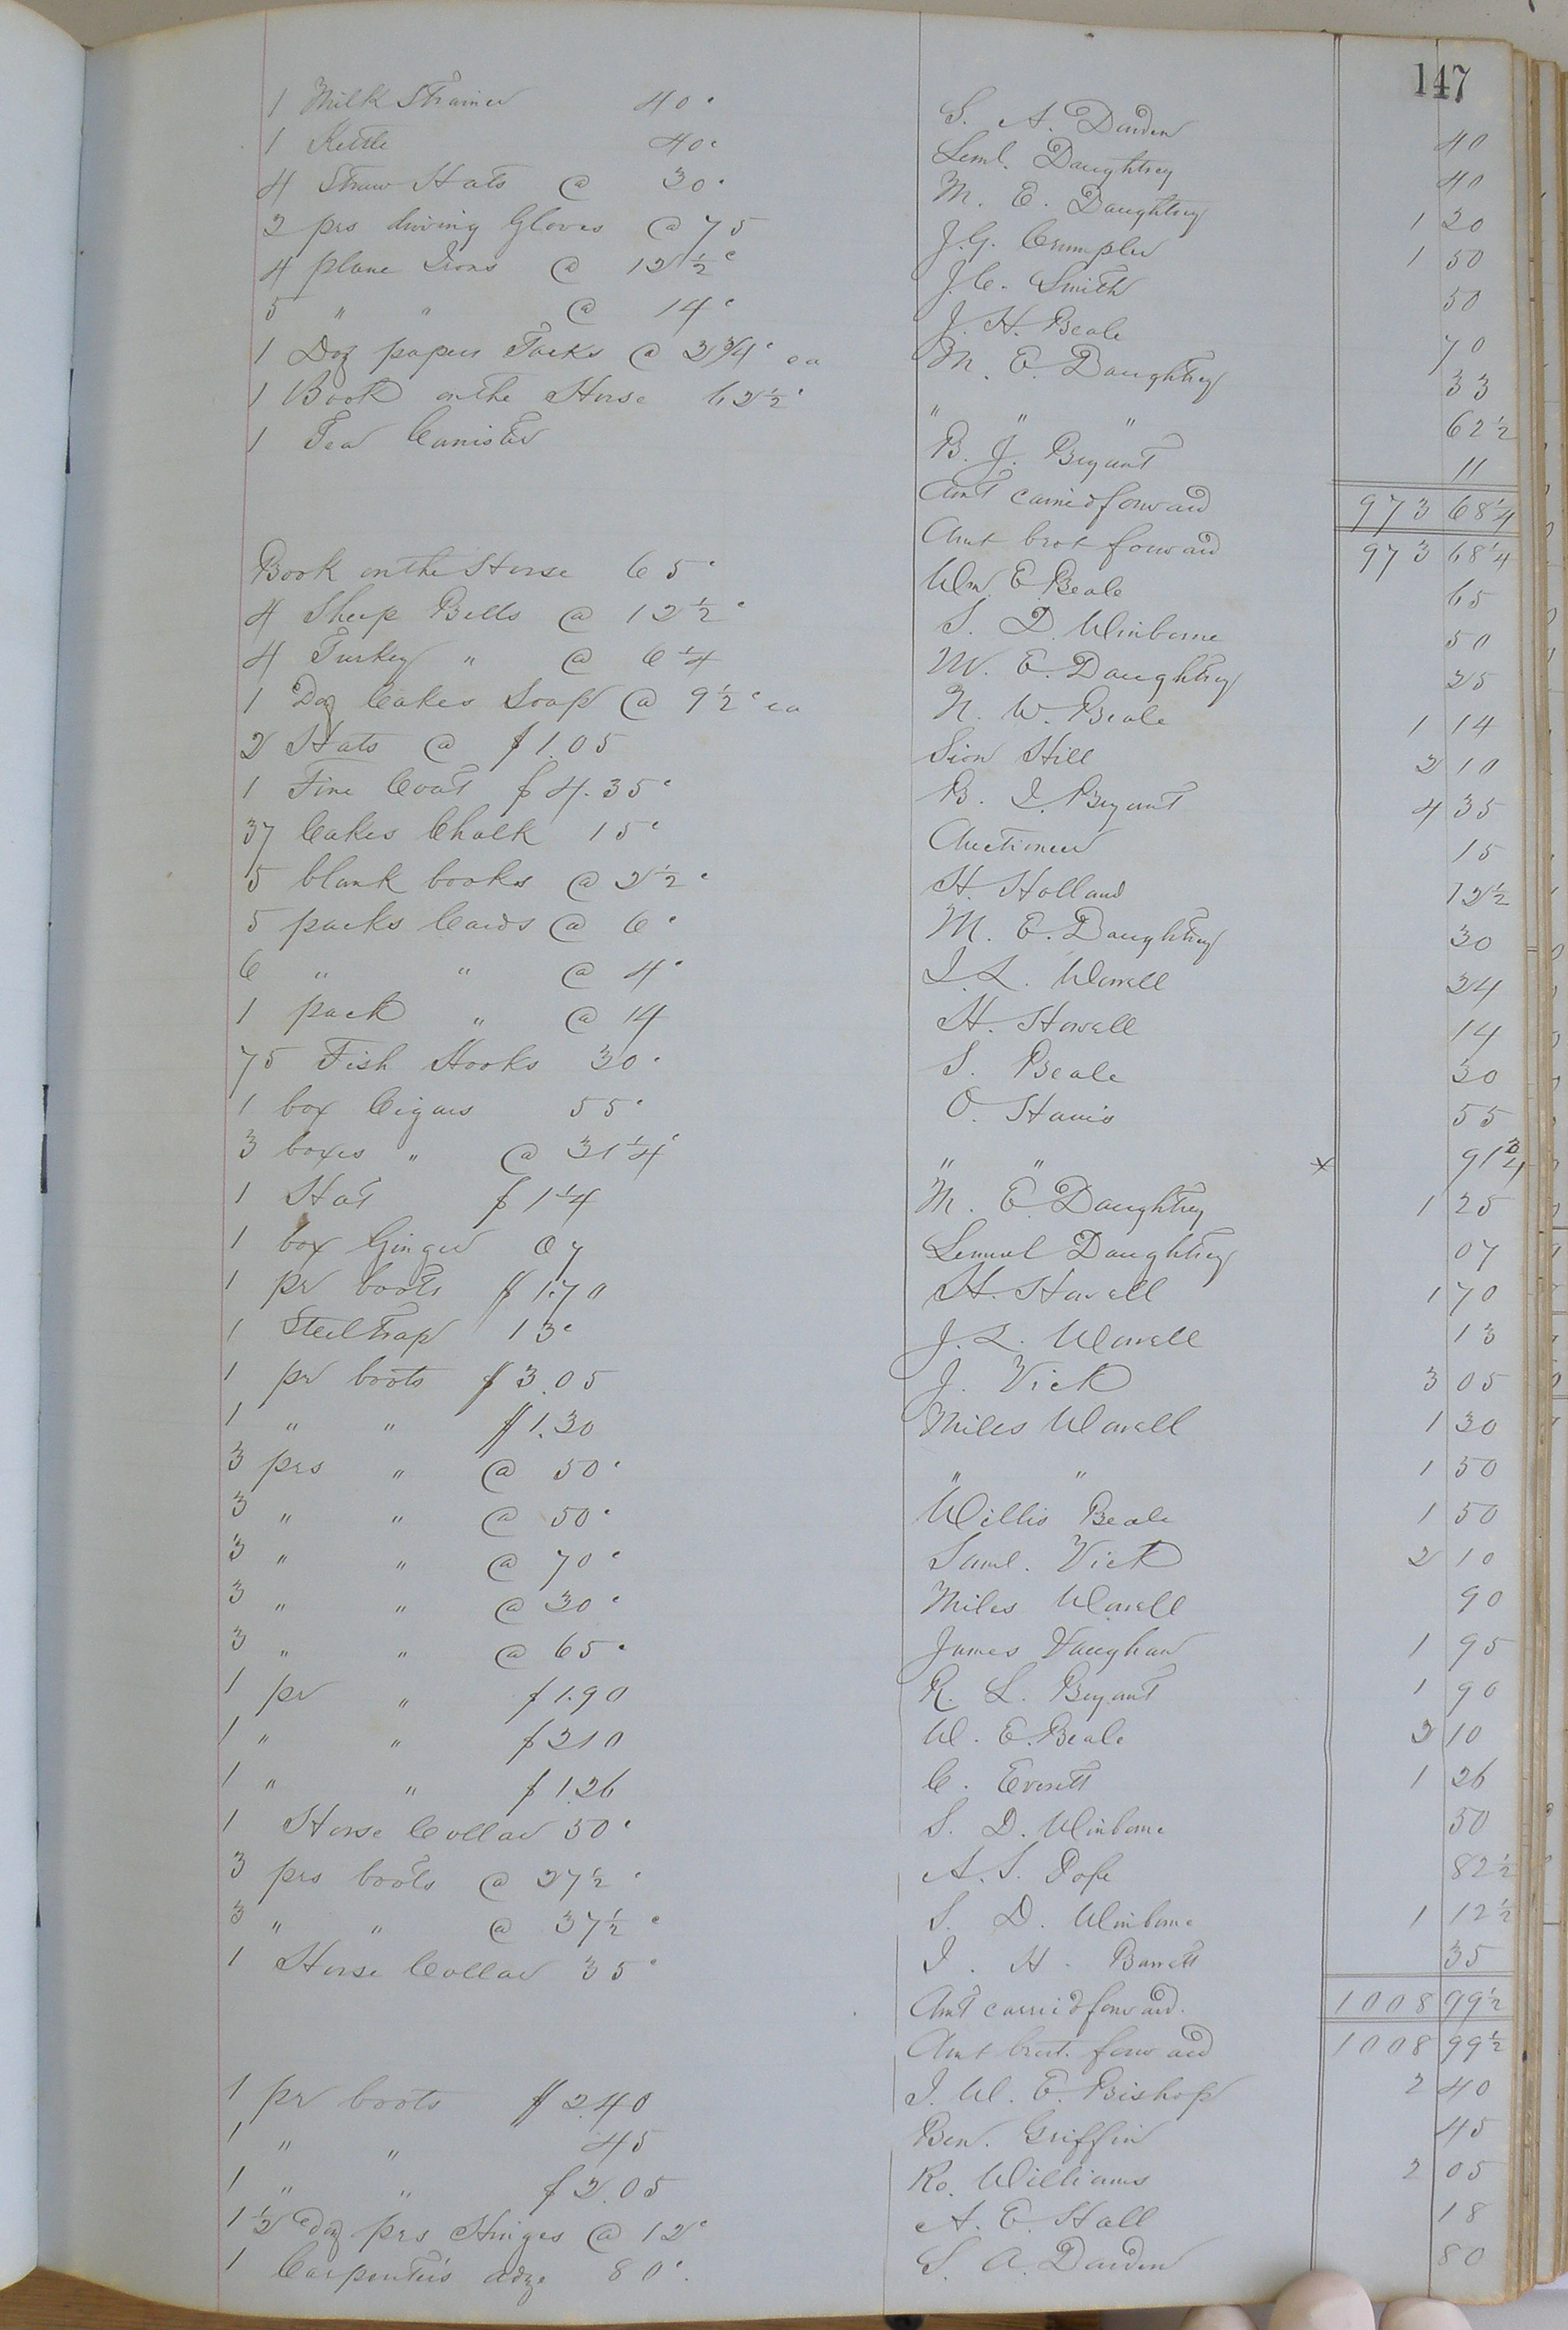 147
1 Milk Strainer 40c S. A. Darden 40
1 Kettle 40c Leml. Daughtrey 40
4 Straw Hats @ 30c M. E. Daughtrey 1 20
2 prs driving Gloves @ 75 J. G. Crumpler 1 50
4 plane Irons @ 12½c J. C. Smith 50
5 " " @ 14c J. H. Beale 70
1 Doz papers Tacks @ 2¾c ea M. E. Daughtrey 33
1 Book on the Horse 62½c " " " 62½
1 Tea Canister B. J. Bryant 11
Amt carried forward 973 68¼
Amt brot forward 973 68¼
Book on the Horse 65c Wm E Beale 65
4 Sheep Bells @ 12½c S. D. Winborne 50
4 Turkey " @ 6¼ M. E. Daughtrey 25
1 Doz Cakes Soap @ 9½c ea N. W. Beale 1 14
2 Hats @ $1.05 Sion Hill 2 10
1 Fine Coat $4.35c B. J. Bryant 4 35
37 Cakes Chalk 15c Auctioneer 15
5 blank books @ 2½c H. Holland 12½
5 packs Cards @ 6c M. E. Daughtrey 30
6 " " @ 4c J. L. Worrell 24
1 pack " @ 14 H. Howell 14
75 Fish Hooks 30c S. Beale 30
1 box Cigars 55c O. Harris 55
3 boxes " @ 31¼c " " x 91¾
1 Hat $1¼ M. E. Daughtrey 1 25
1 box Ginger 07 Lemuel Daughtrey 07
1 pr boots $1.70 H. Howell 1 70
1 Steel Trap 13c J. L. Worrell 13
1 pr boots $3.05 J. Vick 3 05
1 " " $1.30 Miles Worrell 1 30
3 prs " @ 50c " " 1 50
3 " " @ 50c Willis Beale 1 50
3 " " @ 70c Saml. Vick 2 10
3 " " @ 30c Miles Worrell 90
3 " " @ 65c James Vaughan 1 95
1 pr " $1.90 R. L. Bryant 1 90
1 " " $2 10 W. E. Beale 2 10
1 " " $1.26 C. Everett 1 26
1 Horse Collar 50c S. D. Winborne 50
3 prs boots @ 27½c A. S. Pope 82½
3 " " @ 37½c S. D. Winborne 1 12½
1 Horse Collar 35c J. H. Barrett 35
Amt carried forward. 1008 99½
Amt brot. forward 1008 99½
1 pr boots $2.40 J. W. E. Bishop 2 40
1 " " 45 Ben. Griffin 45
1 " " $2.05 Ro. Williams 2 05
1½ doz prs Hinges @ 12c A. E. Hall 18
1 Carpenter's adze 80c. S. A. Darden 80